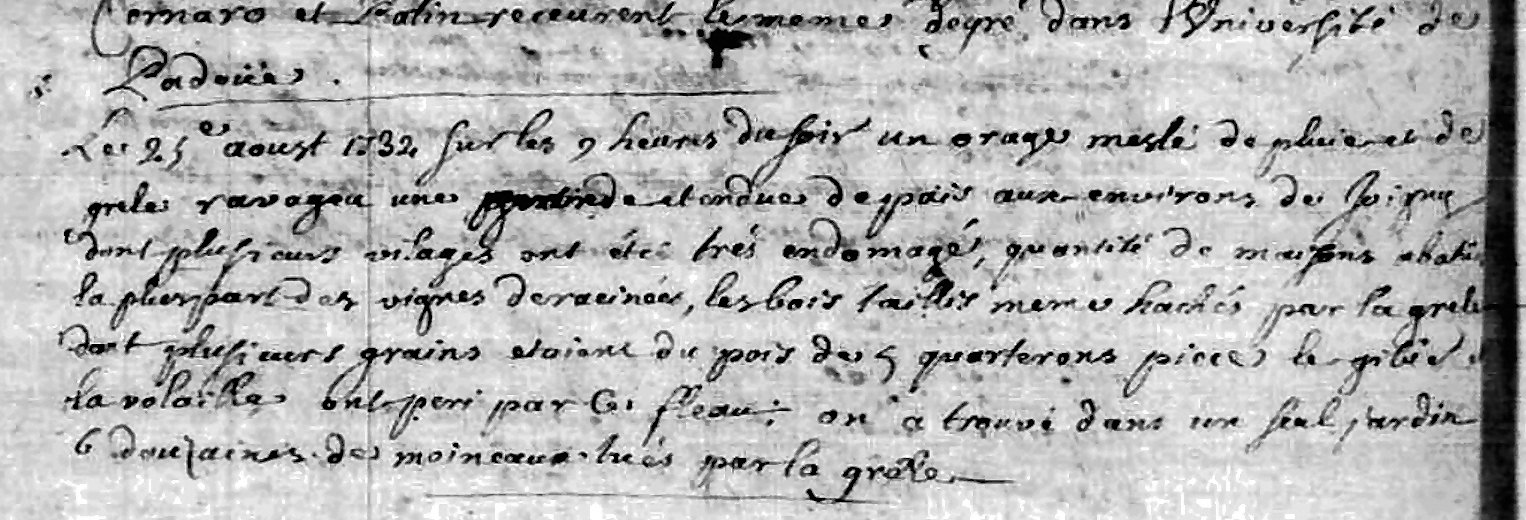 Cornaro et Patin receurent le meme degré dans l'Université de
Padoüe.
Le 25e aoust 1732 sur les 9 heures du soir un orage meslé de pluie et de
grele ravagea une grande etendue de païs aux environs de Joigny
dont plusieurs vilages ont étéi trés endomagé, quantité de maisons abatu
la pluspart des vignes deracinées, les bois taillis meme hachés par la grele
dont plusieurs grains etoient du pois de 5 quarterons piece le gibié et
la volaille ont peri par ce fleau; on a trouvé dans un seul jardin
6 douzaines de moineaux tués par la grêle